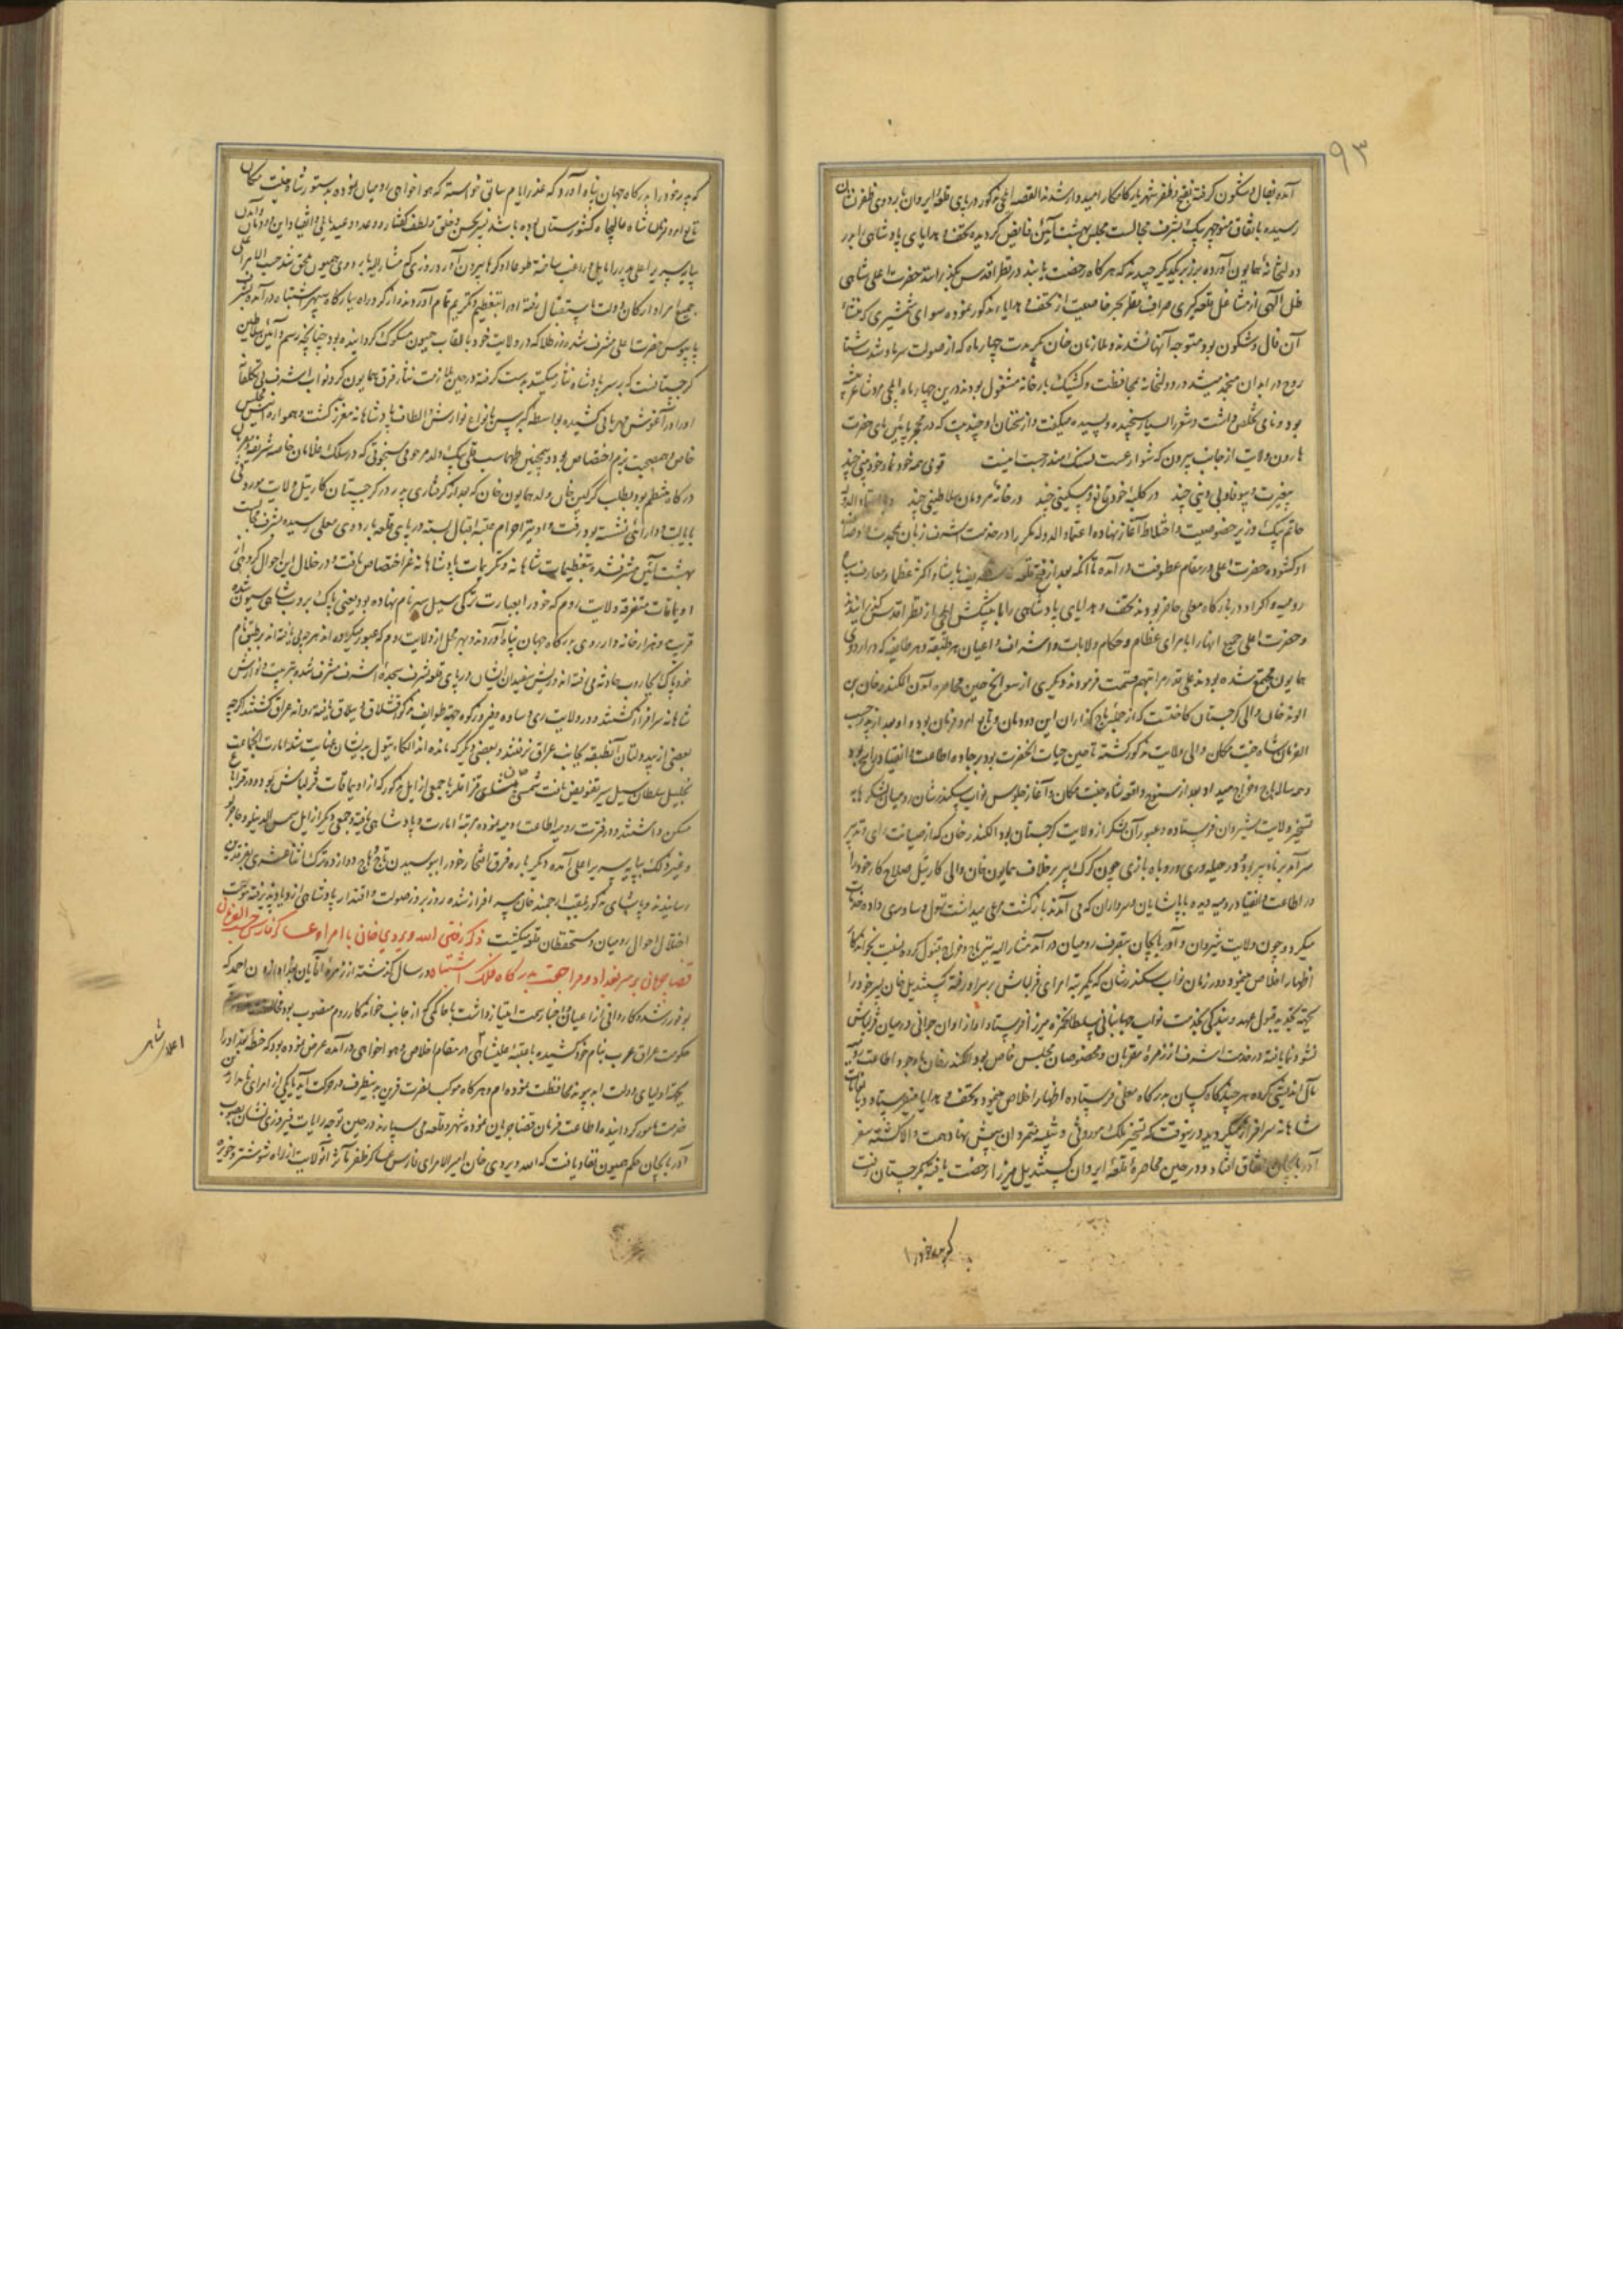 ۹۳
آمده بفال و شکون گرفته بفتح و ظفر شهریار کامکار امیدوار شدند القصه ایلچی مذکور در پای قلعه ایروان باردوی ظفرنشان
رسیده باتفاق منوچهر بیک بشرف مجالست مجلس بهشت آئین فایض گردیده تحف و هدایای پادشاهی را در
دولتخانه همایون آورده بر زبر یکدیگر چیدند که هر گاه رخصت یابند در نظر اقدس بگذرانند حضرت اعلی شاهی
ظل الهی از مشاغل قلعه گیری صراف نظر بحر خاصیت از تحف و هدایای مذکور نموده سوای شمشیری که منشاء
آن فال و شکون بود متوجه آنها نشدند و ملازمان خان مدت چهار ماه که از صولت سرما و شدت شتا
روح در ابدان منجمد میشد در دولتخانه بمحافظت و کشیک بارخانه مشغول بودند درین چهار ماه ایلچی مرد شاعر پیشه
بود و نامی تخلص داشت و شعر را بسیار سنجیده و پسندیده میگفت و از سخنان او چند بیت که در حجر پائین پای حضرت
هارون ولایت از جانب بیرون که شوارعست نصب است اینست قومی همه خودنما و خودبینی چند
بیغیرت و بیوفا و بی دینی چند در کلبه خود قانع و مسکینی چند در خانه مردمان سلاطینی چند
حاتم بیک وزیر خصوصیت و اختلاط آغاز نهاده اعتماد الدوله مکرر در خدمت اشرف زبان بمحمدت اوصاف
او گشوده حضرت اعلی در مقام عطوفت در آمده تا آنکه بعد از فتح قلعه و اکثر عظما و معارف سپاه
رومیه و اکراد در بارگاه معلی حاضر بودند تحف و هدایای پادشاهی را با پیشکش ایلچی از نظر اقدس گذرانیدند
و حضرت اعلی جمیع آنها را بامرای عظام و حکام ولایات و اشراف و اعیان هر طبقه و هر طایفه که در اردوی
همایون مجتمع شده بودند علی قدر مراتبهم قسمت فرمودند و دیگری از سوانح حین محاصره آمدن الکسندر خان بن
الوند خان والی گرجستان کاخت است که از جمله باج گذاران این دودمان و تابع امر و فرمان بود و او بعد از پدر حسب
الفرمان شاه جنت مکان والی ولایت مذکور گشته تا حین حیات آنحضرت بود بر جاده اطاعت و انقیاد راسخ بوده
و همه ساله باج و خراج میداد و بعد از سنوح واقعه شاه جنت مکان و آغاز جلوس نواب سکندر شان رومیان لشکرها به
تسخیر ولایت شیروان فرستاده و عبور آن لشکر از ولایت گرجستان بود الکسندر خان که از صیانت رای و تدبیر
سرآمد بر نا و پیر بود و در حیله وری و روباه بازی چون گرگ پیر برخلاف همایون خان والی کارتیل صلاح کار خود را
در اطاعت و انقیاد رومیه دیده با پاشایان و سرداران که می آمدند بازگشت مرعی میداشت تحول و ساوری داده خدمت
میکرد و چون ولایت شیروان و آذربایجان بتصرف رومیان در آمد مشارالیه نیز باج و خراج قبول کرده بست بخواندگار
اظهار اخلاص مینمود و در زمان نواب سکندر شان که یکمرتبه امرای قزلباش بر سر او رفته کستندیل خان پسر خود را
بجهة تقویه قبول عهد و بندگی بخدمت نواب جهانبانی سلطان حمزه میرزا فرستاد و او از اوان جوانی در میان قزلباش
نشو و نما یافته در خدمت اشرف از زمره مقربان و مخصوصان مجلس خاص بود الکسندر خان با وجود اطاعت رومیه
مآل اندیشی کرده هر چند گاه کسان بدرگاه معلی فرستاده اظهار اخلاص مینمود و تحف و هدایا میفرستاد و بتفقدات
شاهانه سرافراز میگردید درینوقت که تسخیر ملک موروثی و تنبیه متمردان پیش نهاد همت والا گشته سفر
آذربایجان اتفاق افتاد و در حین محاصره قلعه ایروان کستندیل میرزا رخصت یافته بگرجستان رفت
که پدر خود را
که پدر خود را بدرگاه جهان پناه آورد که عذر ایام سابق خواسته که هواخواهی رومیان نموده بدستور شاه جنت مکان
تابع امر و فرمان شاه عالیجاه کشورستان بوده باشد نیز بحسن و خلق و لطف گفتار و وعد و وعید باطاعت و انقیاد این دودمان و آمدن
بپایه سریر اعلی پدر را مایل و راغب ساخته طوعا او کرها بیرون آورد و روزی که مشارالیه باردوی همیون ملحق شد حسب الامر اعلی
جمیع امرا و ارکان دولت باستقبال رفته او را بتعظیم و تکریم تمام آوردند از گرد راه ببارگاه سپهر اشتباه در آمده بشرف
پابوس حضرت اعلی مشرف شد و زر طلا که در ولایت خود بالقاب همیون مسکوک گردانیده بود چنانچه رسم و آئین سلاطین
گرجستانست که بر سر پادشاه نثار میکنند بدست گرفته در حین ملازمت نثار فرق همایون کرد نواب اشرف بی تکلفانه
او را در آغوش مهربانی کشیده بواسطه کبرسن بانواع نوازش و الطاف پادشاهانه معزز گشت و همواره انیس مجلس
خاص و همصحبت بزم اختصاص بود و همچنین طهماسب قلی بیک ولد مرحومی سنجوقی که در سلک غلامان خاصه شریفه
درگاه منتظم بود بطلب گرگین خان ولد همایون خان که بعد از گرفتاری پدر در گرجستان کارتیل ولایت موروثی
بایالت و دارائی نشسته بود رفت و او نیز احرام عتبه اقبال بسته در پای قلعه باردوی معلی رسیده بشرف مجالست
بهشت آئین مشرف شده بتعظیمات شاهانه و تکریمات پادشاهانه عز اختصاص یافت و در خلال این احوال گروهی از
اویماقات متفرقه ولایت روم که خود را بعبارت ترکی سیل سپر نام نهاده بود یعنی پاک بروب شاهی سیون شده
قریب دو هزار خانه وار روی بدرگاه جهان پناه آوردند و بهر محل از ولایت روم که عبور میکرده اند هر چه یافته اند بر طبق نام
خود پاک بجاروب حادثه می رفته اند و ریش سفیدان ایشان در پای قلعه بشرف سجده اشرف مشرف شده بتربیت و نوازش
شاهانه سرافراز گشتند و در ولایت ری و ساوه و فیروزکوه جهة طوایف مذکور قشلاق و ییلاق یافته روانه عراق گشتند اگر چه
بعضی از بیدولتان آنطبقه بجانب عراق نرفتند و بعضی دیگر که مانده اند الکاء بتیول بدیشان عنایت شد امارت آنجماعت
بخلیل سلطان سیل سپر تفویض یافت شمسی پاشای قزاقلر با جمعی از ایل مذکور که از اویماقات قزلباش بود و در قراباغ
مسکن داشتند و در فترت رومیه اطاعت رومیه نموده مرتبه امارت و پادشاهی یافته و جمعی دیگر از ایل شمس الدینلو و حاجیلر
و غیر ذلک بپایه سریر اعلی آمده دیگر باره فرق افتخار خود را بپوسیدن تاج وهاج دوازده ترک اثناعشری
رسانیدند و پاشای مذکور بلقب ارجمند خانی سرافراز شده روز بروز صولت و اقتدار پادشاهی ازدیاد پذیرفته موجب
اختلال احوال رومیان و مستحفظان قلعه میگشت ذکر رفتن الله ویردی خان با امراء و عساکر فارس حسب الفرمان
قضا جریان بر سر بغداد و مراجعت بدرگاه فلک اشتباه در سال گذشته از زمره آقایان بغداد اوزون احمد که
بوفور رشد و کاردانی از اعیان آنجا رتبت امتیاز داشت با حاکمی که از جانب خواندگار روم منصوب بود مخالفت
حکومت عراق عرب بنام خود کشیده با عتبه علیه شاهی در مقام اخلاص و هواخواهی در آمده عرض نموده بود که خطه بغداد را
بجهة اولیای دولت ابد پیوند محافظت نموده ام و هر گاه موکب نصرت قرین بدینطرف در حرکت آید یا یکی از امرای نامدار
خدمت مامور گردانیده اطاعت فرمان قضا جریان نموده شهر و قلعه می سپارند در حین توجه رایات فیروزی نشان بصوب
آذربایجان حکم همیون نفاذ یافت که الله ویردی خان امیر الامرای فارس با عساکر ظفر مآثر آنولایت از راه شوشتر و حویزه